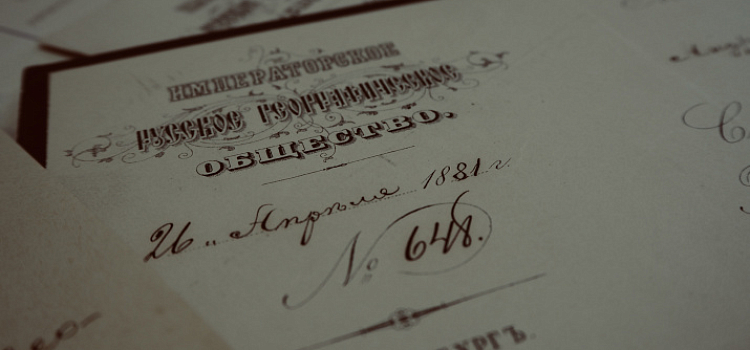 ИМПЕРАТОРСКОЕ
РУССКОЕ ГЕОГРАФИЧЕСКОЕ
ОБЩЕСТВО.
26 „ Апрѣля 1881 г.
№ 648.